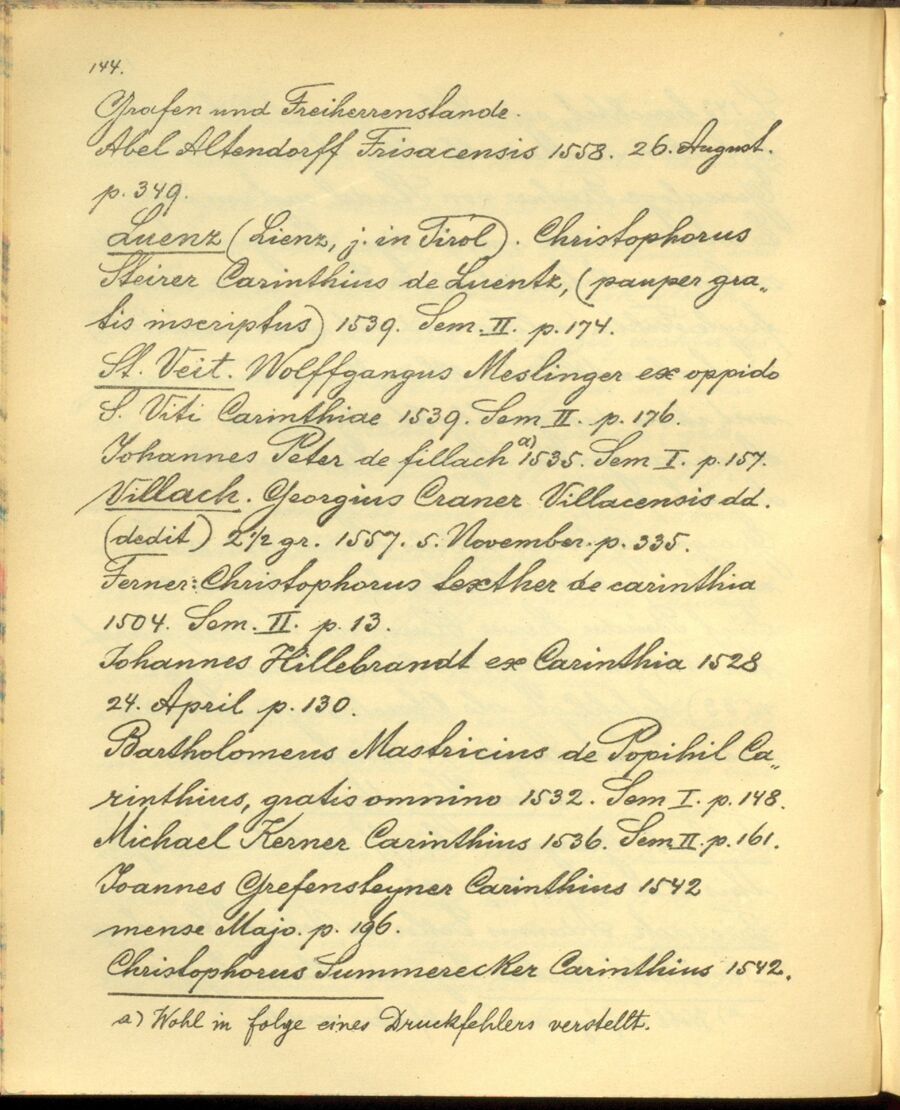 144.
Grafen und Freiherrenstande.
Abel Altendorff Frisacensis 1558. 26. August.
p. 349.
Luenz (Lienz, j. in Tirol). Christophorus
Steirer Carinthius de Luentz, (pauper gra„
tis inscriptus) 1539. Sem. II. p. 174.
St. Veit. Wolffgangus Meslinger ex oppido
S. Viti Carinthiae 1539. Sem II. p. 176.
Johannes Peter de fillach a) 1535. Sem I. p. 157.
Villach. Georgius Craner Villacensis dd.
(dedit) 2 1/2 gr. 1557. 5. November. p. 335.
Ferner: Christophorus Lexther de carinthia
1504. Sem. II. p. 13.
Johannes Hillebrandt ex Carinthia 1528
24. April p. 130.
Bartholomeus Mastricius de Popihil Ca„
rinthius, gratis omnino 1532. Sem I. p. 148.
Michael Kerner Carinthius 1536. Sem II. p. 161.
Joannes Grefensteyner Carinthius 1542
mense Majo. p. 196.
Christophorus Summerecker Carinthius 1542.
a) Wohl in folge eines Druckfehlers verstellt.